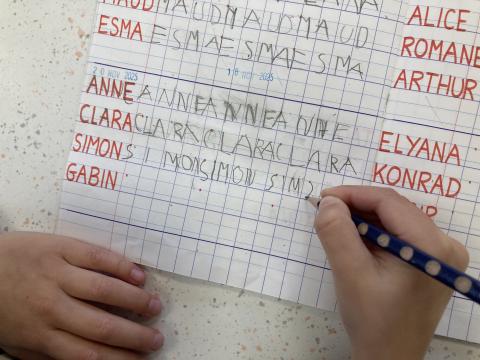 MAUD MAUDMAUDMAUD
ESMA ESMAESMAESMA
20 NOV 2025 18 NOV 2025
ANNE ANNEANNEANNE
CLARA CLARACLARACLARA
SIMON SIMONSIMON SIMO
GABIN
ALICE
ROMANE
ARTHUR
ELYANA
KONRAD